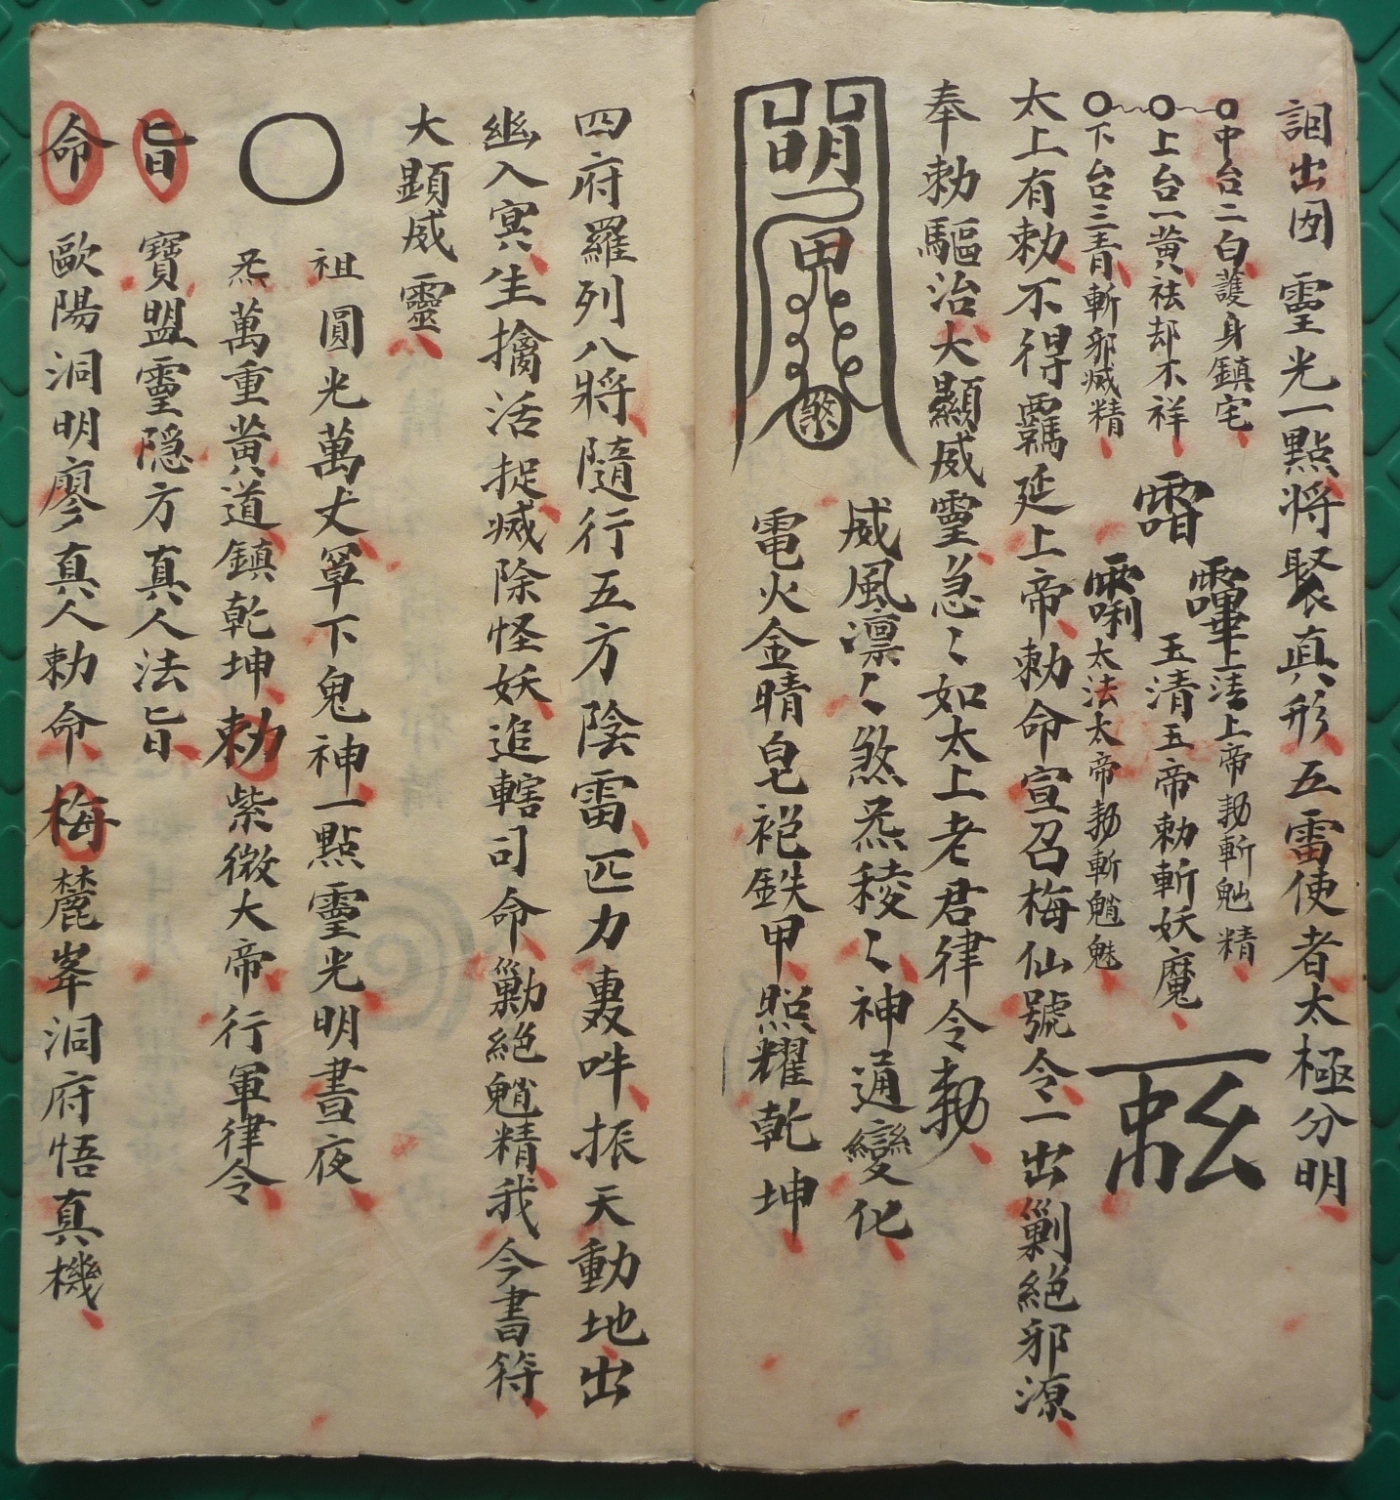 出 靈光一點将聚真形五雷使者太極分明
中台二白護身鎮宅
上台一黄祛却不祥
下台三青斬邪滅精
上清上帝勅斬魑精
玉清五帝勅斬妖魔
太法太帝勅斬魈魅
太上有勅不得羈延上帝勅命宣召梅仙號令一出剿絕邪源
奉勅驅治大顯威靈急〻如太上老君律令勅
威風凛〻煞炁稜〻神通變化
電火金睛皂袍鉄甲照耀乾坤
四府羅列八將隨行五方陰雷匹力轰吽振天動地出
幽入冥生擒活捉滅除怪妖追轄司命勦絕魈精我今書符
大顯威靈
祖圓光萬丈罩下鬼神一點靈光明晝夜
炁萬重黄道鎮乾坤勅紫微大帝行軍律令
旨寶盟靈隐方真人法旨
命歐陽洞明廖真人勅命梅麓峯洞府悟真機